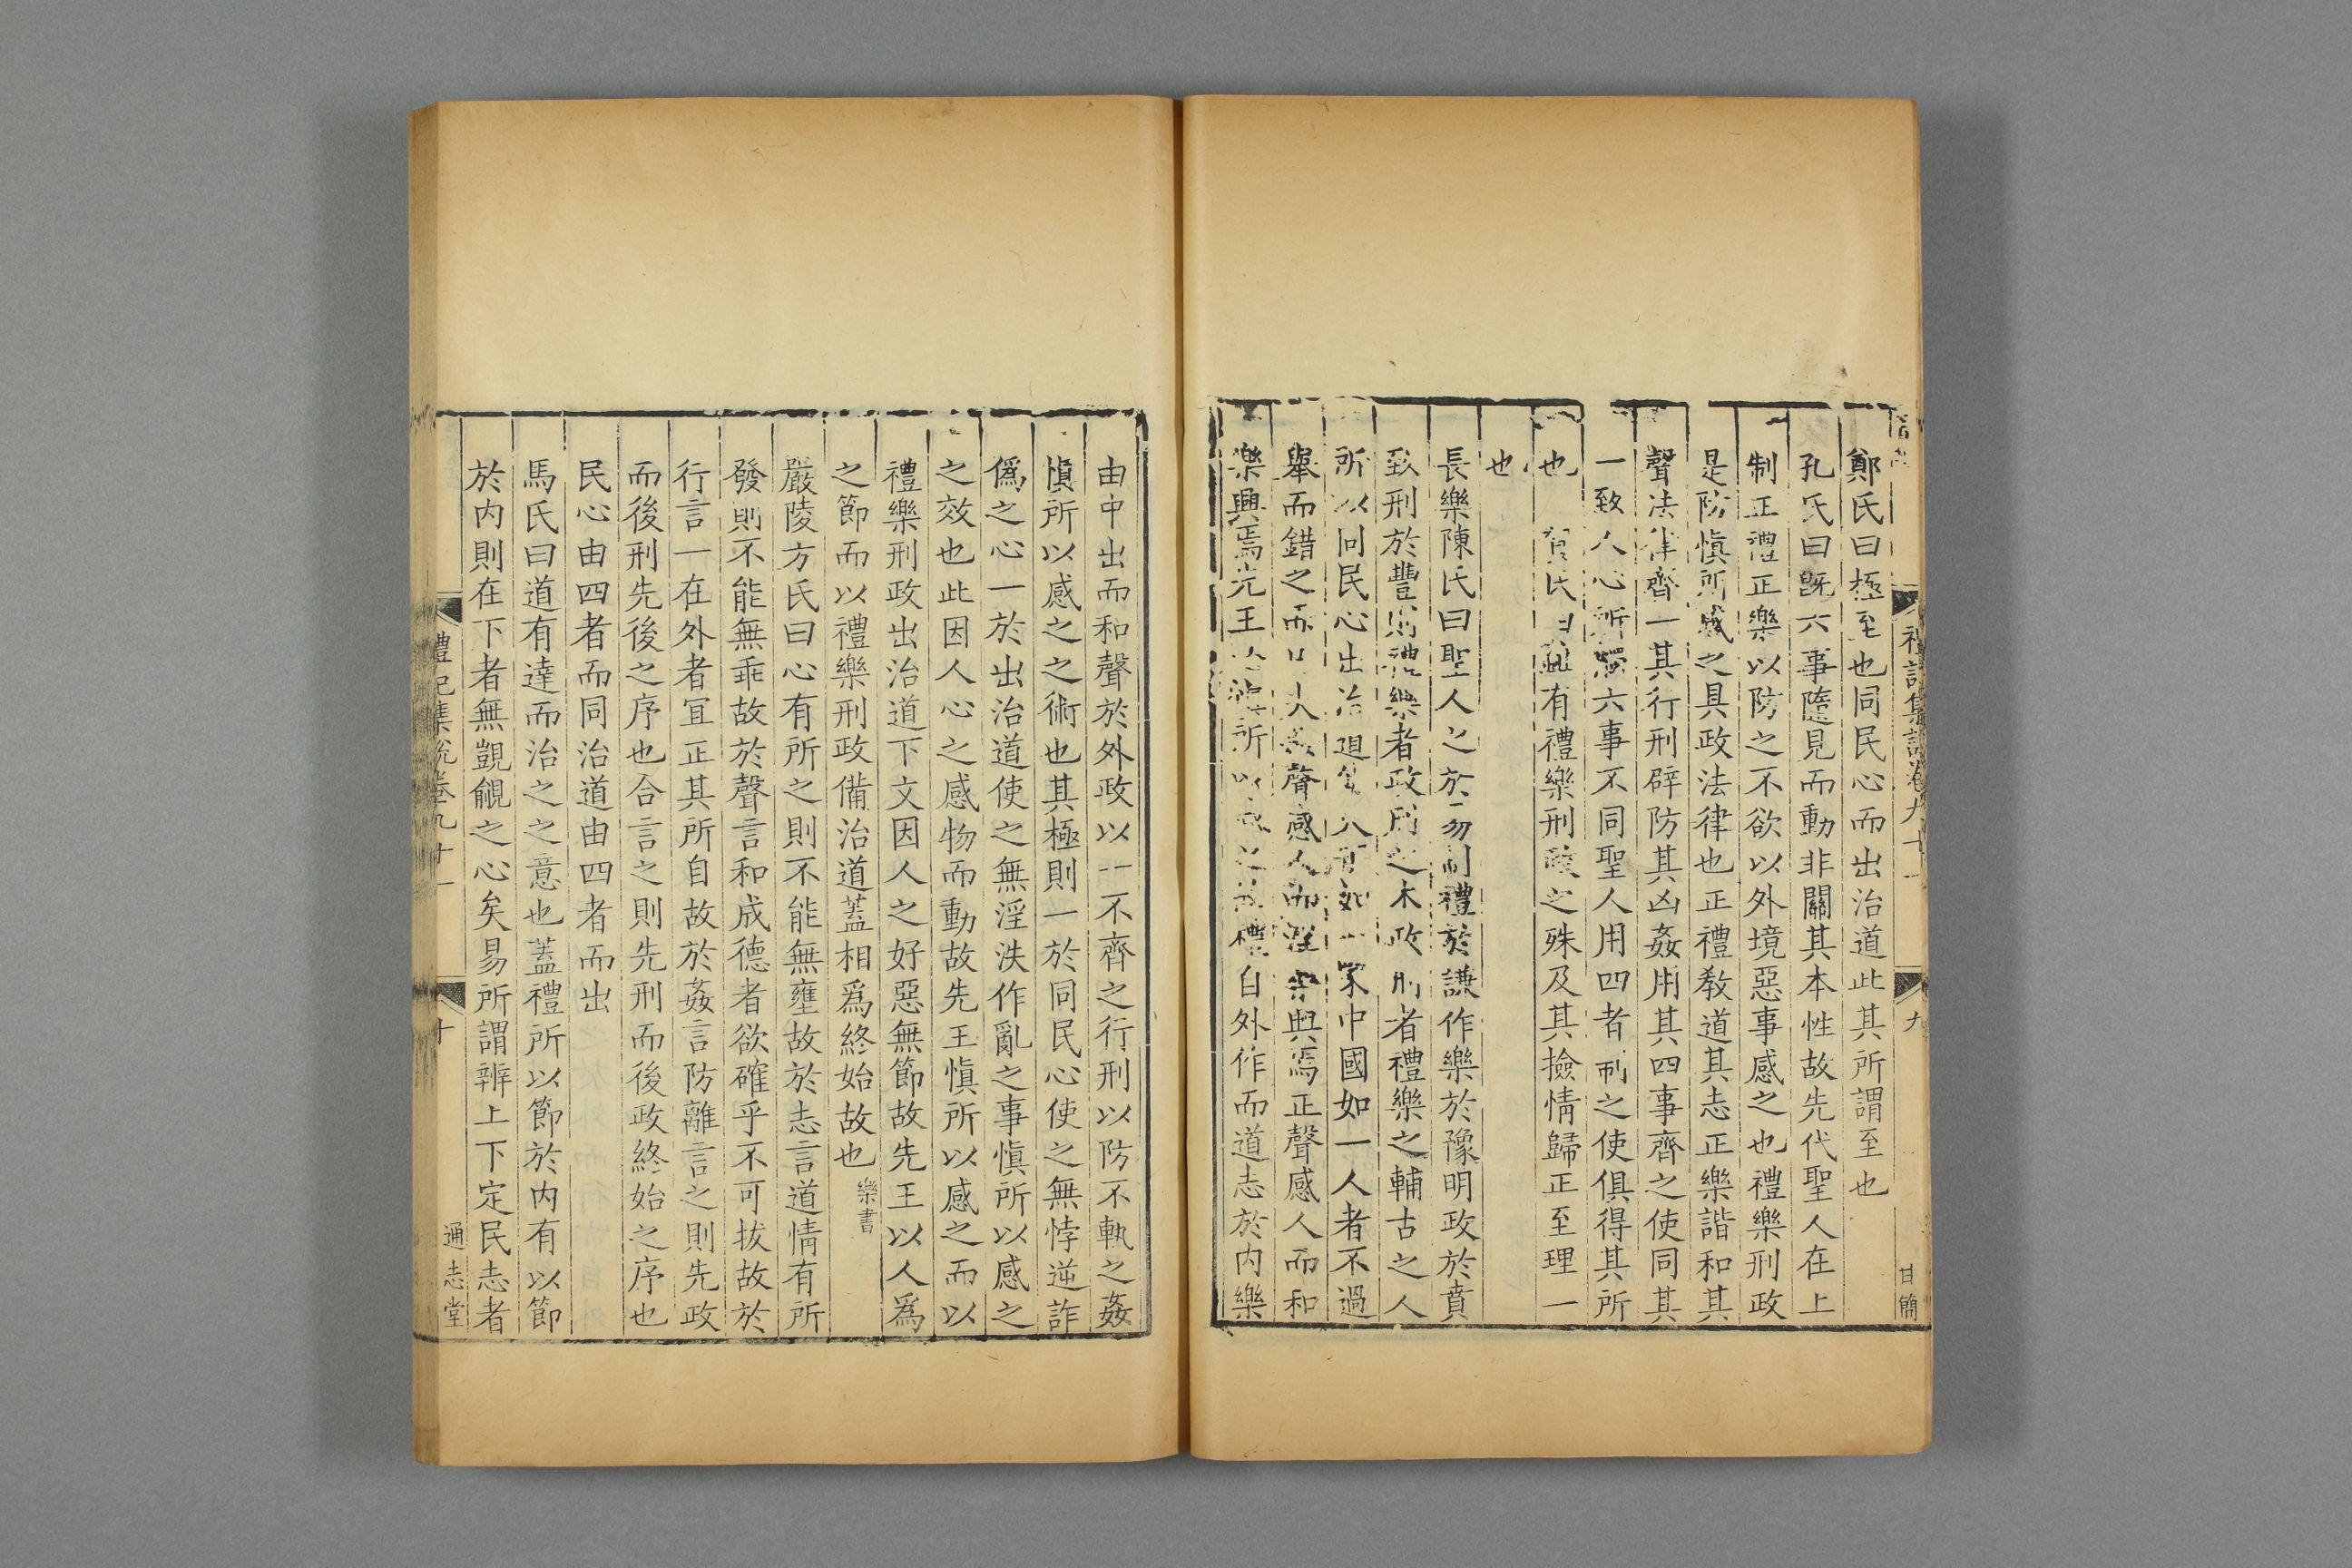 禮記集說卷九十一
九
甘簡
鄭氏曰極至也同民心而出治道此其所謂至也
孔氏曰旣六事隨見而動非關其本性故先代聖人在上
制正禮正樂以防之不欲以外境惡事感之也禮樂刑政
是防愼所感之具政法律也正禮敎道其志正樂諧和其
聲法律齊一其行刑辟防其凶姦用其四事齊之使同其
一致人心所感六事不同聖人用四者制之使俱得其所
也 賀氏曰雖有禮樂刑政之殊及其撿情歸正至理一
也
長樂陳氏曰聖人之於制禮於謙作樂於豫明政於賁
致刑於豐則禮樂者政刑之本政刑者禮樂之輔古之人
所以同民心出治道使天下如一家中國如一人者不過
舉而錯之而以姦聲感人而淫樂興焉正聲感人而和
樂興焉先王所以禮自外作而道志於内樂
由中出而和聲於外政以一不齊之行刑以防不軌之姦
愼所以感之之術也其極則一於同民心使之無悖逆詐
僞之心一於出治道使之無淫泆作亂之事愼所以感之
之效也此因人心之感物而動故先王愼所以感之而以
禮樂刑政出治道下文因人之好惡無節故先王以人爲
之節而以禮樂刑政備治道蓋相爲終始故也樂書
嚴陵方氏曰心有所之則不能無壅故於志言道情有所
發則不能無乖故於聲言和成德者欲確乎不可拔故於
行言一在外者宜正其所自故於姦言防離言之則先政
而後刑先後之序也合言之則先刑而後政終始之序也
民心由四者而同治道由四者而出
馬氏曰道有達而治之之意也蓋禮所以節於内有以節
於内則在下者無覬覦之心矣易所謂辨上下定民志者
禮記集說卷九十一
十
通志堂